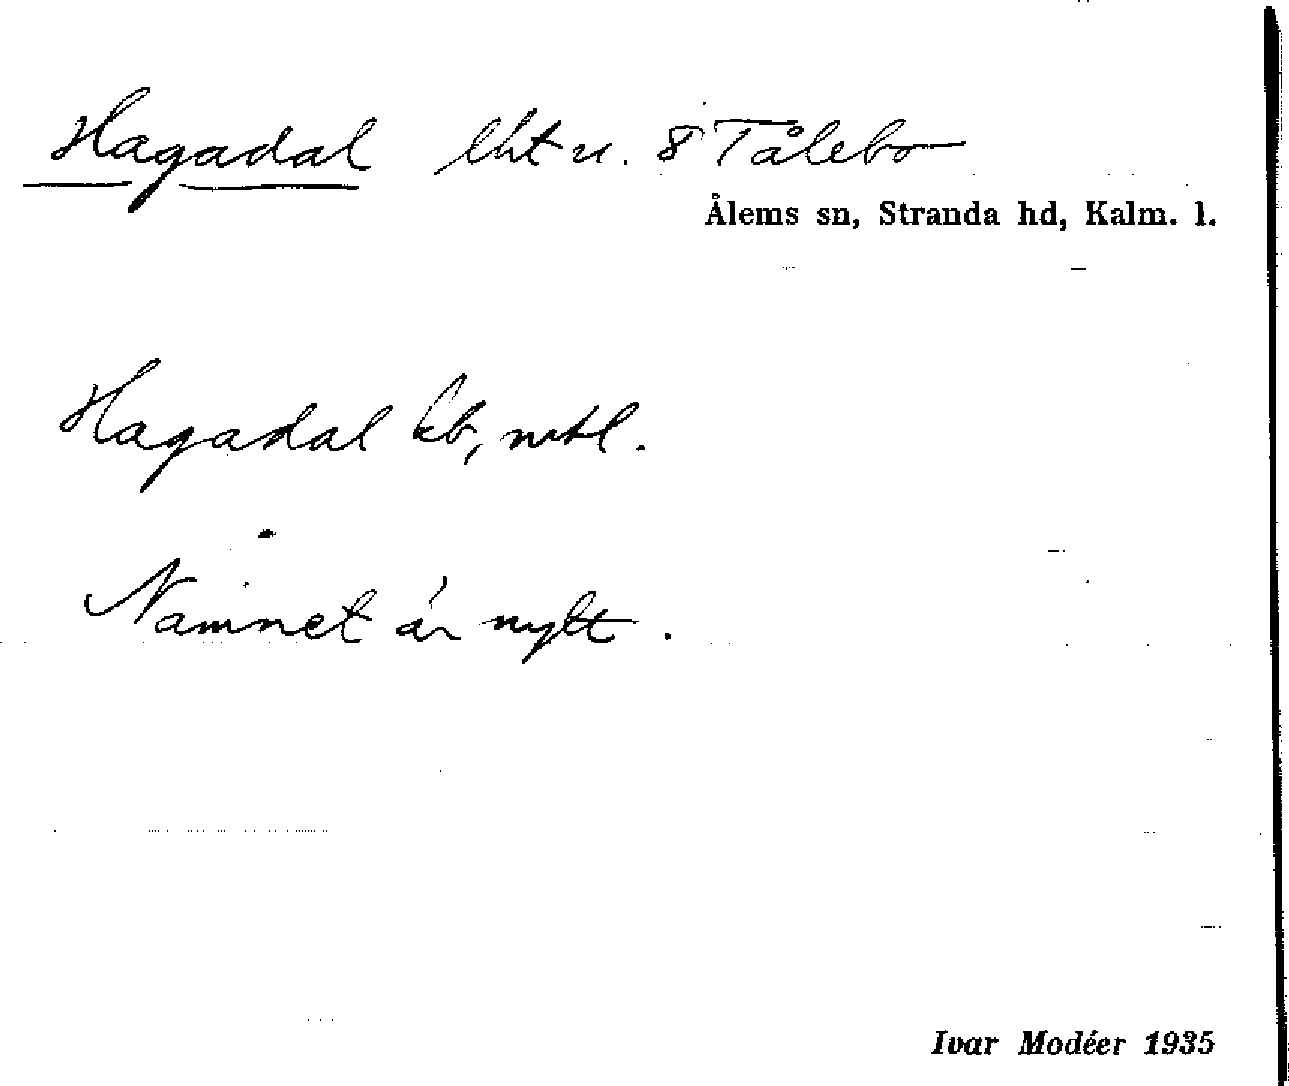 Hagadal lht u. 8 Tålebo
Ålems sn, Stranda hd, Kalm. l.
Hagadal kb, mtl.
Namnet är nytt.
Ivar Modéer 1935